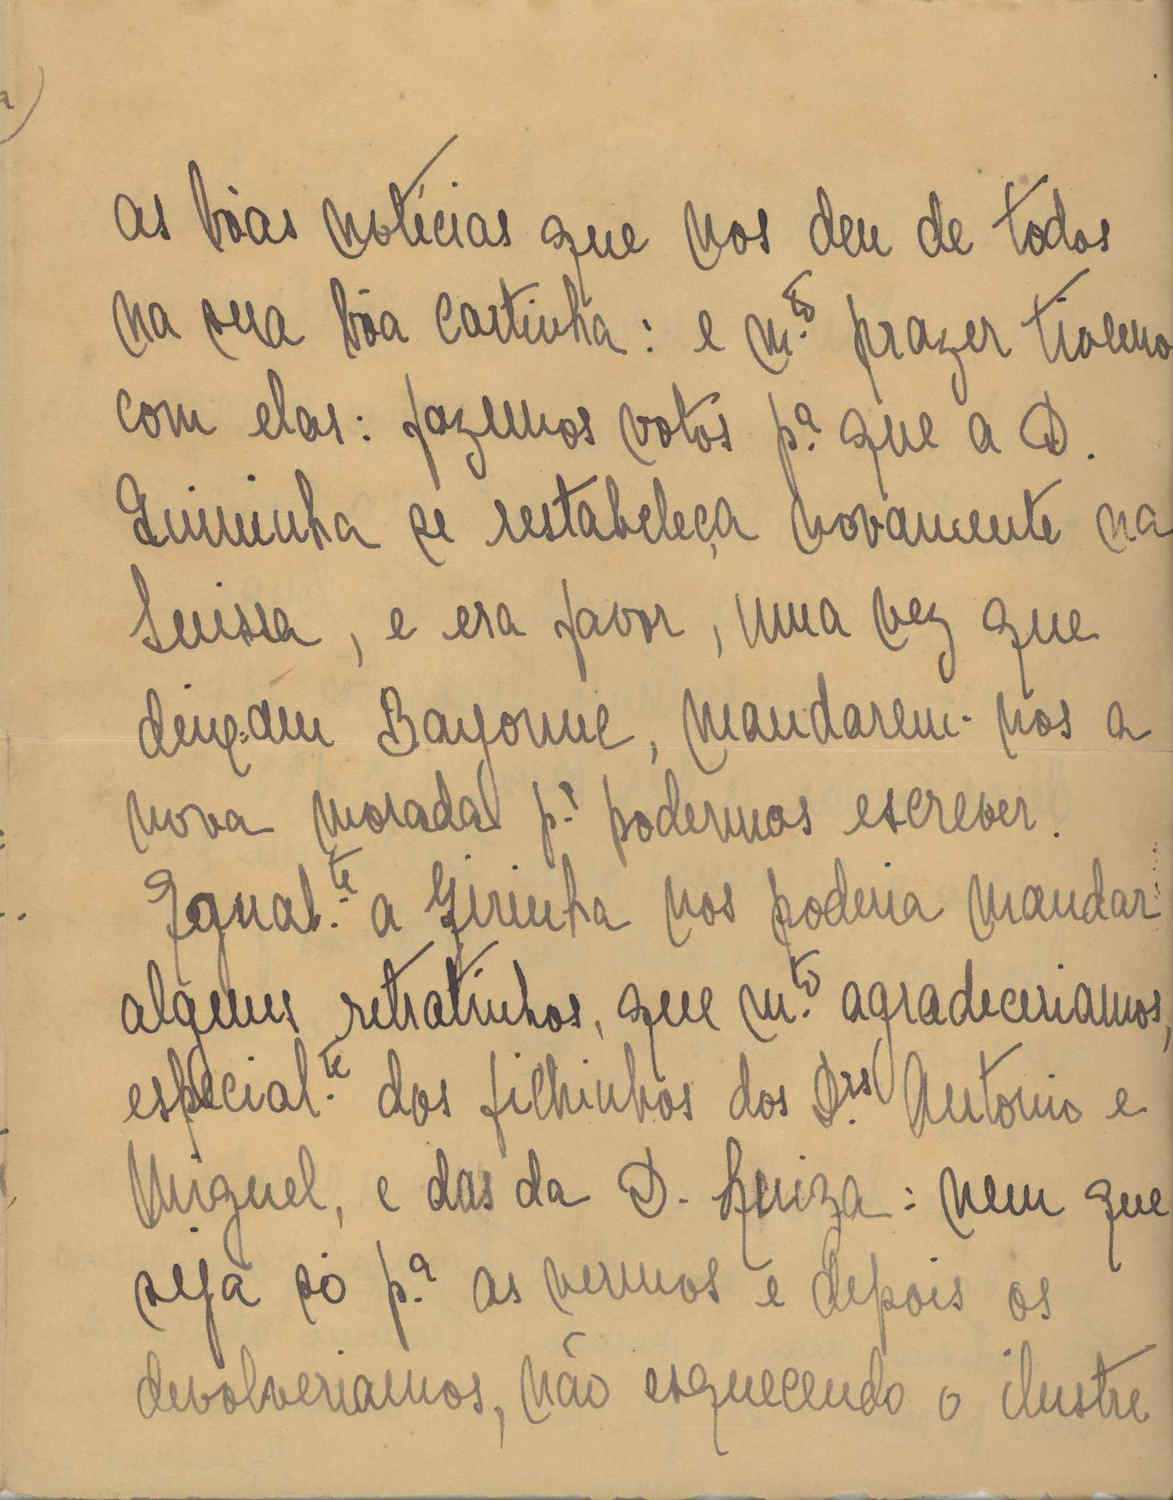 as bôas notícias que nos deu de todos
na sua bôa cartinha: e m.to prazer tivemo
com elas: fazemos votos p.a que a D.
se restabeleça novamente na
Suissa, e era favor, uma vez que
deixem Bayonne, mandarem-nos a
nova morada p.a podermos escrever.
Igual.te a Girinha nos poderia mandar
alguns retratinhos, que m.to agradeceriamos,
especial.te dos filhinhos dos D.rs Antonio e
Miguel, e das da D. Luiza: nem que
seja só p.a as vermos e depois os
devolveriamos, não esquecendo o ilustre